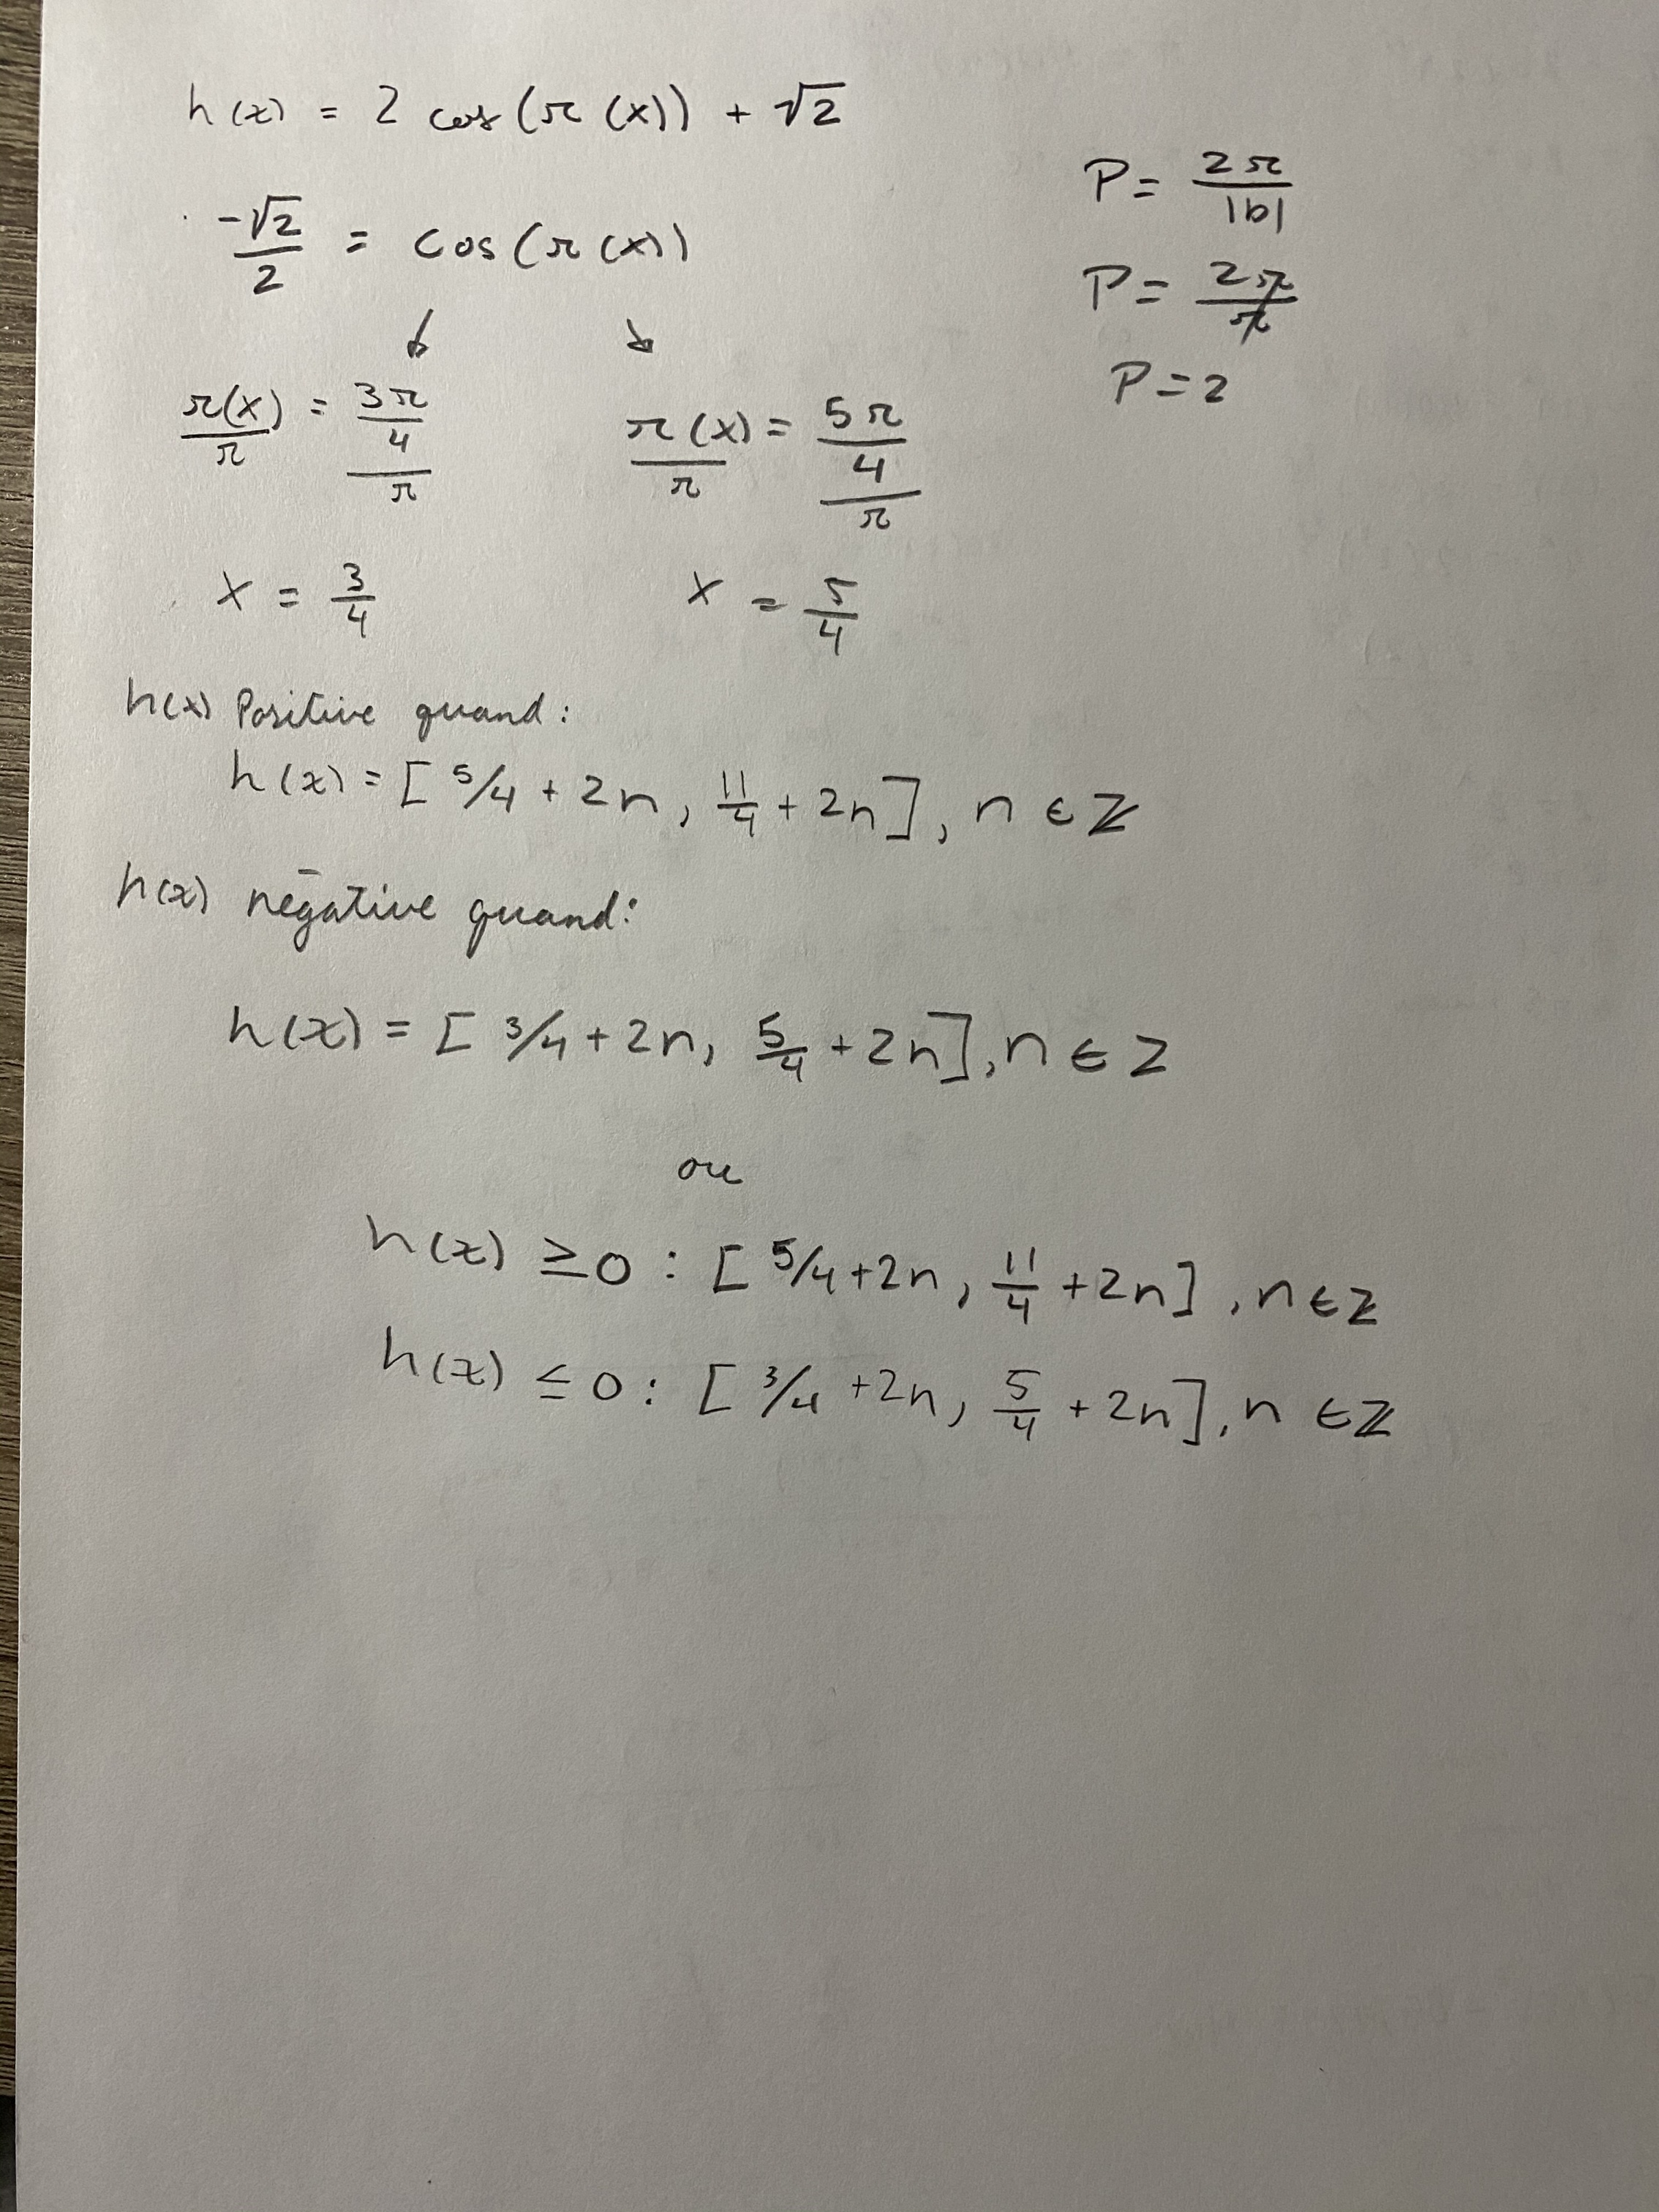 h(x) = 2 cos(π(x)) + √2
-√2/2 = cos(π(x))
π(x)/π = 3π/4/π
π(x)/π = 5π/4/π
x = 3/4
x = 5/4
P = 2π/|b|
P = 2π/π
P = 2
h(x) Positive quand :
h(x) = [5/4 + 2n, 11/4 + 2n], n ∈ ℤ
h(x) négative quand :
h(x) = [3/4 + 2n, 5/4 + 2n], n ∈ Z
ou
h(x) ≥ 0 : [5/4 + 2n, 11/4 + 2n], n ∈ ℤ
h(x) ≤ 0 : [3/4 + 2n, 5/4 + 2n], n ∈ ℤ